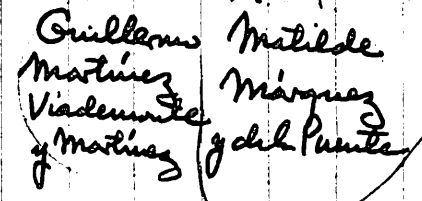 Guillermo
Martínez
Viademonte
y Martínez
Matilde
Márquez
y de la Puente